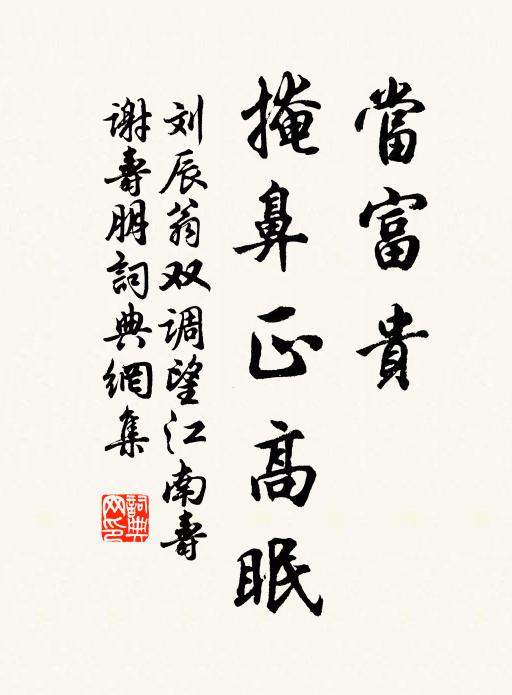 當富貴
掩鼻正高眠
刘辰翁双调望江南壽
谢壽朋詞典網集
詞典网印